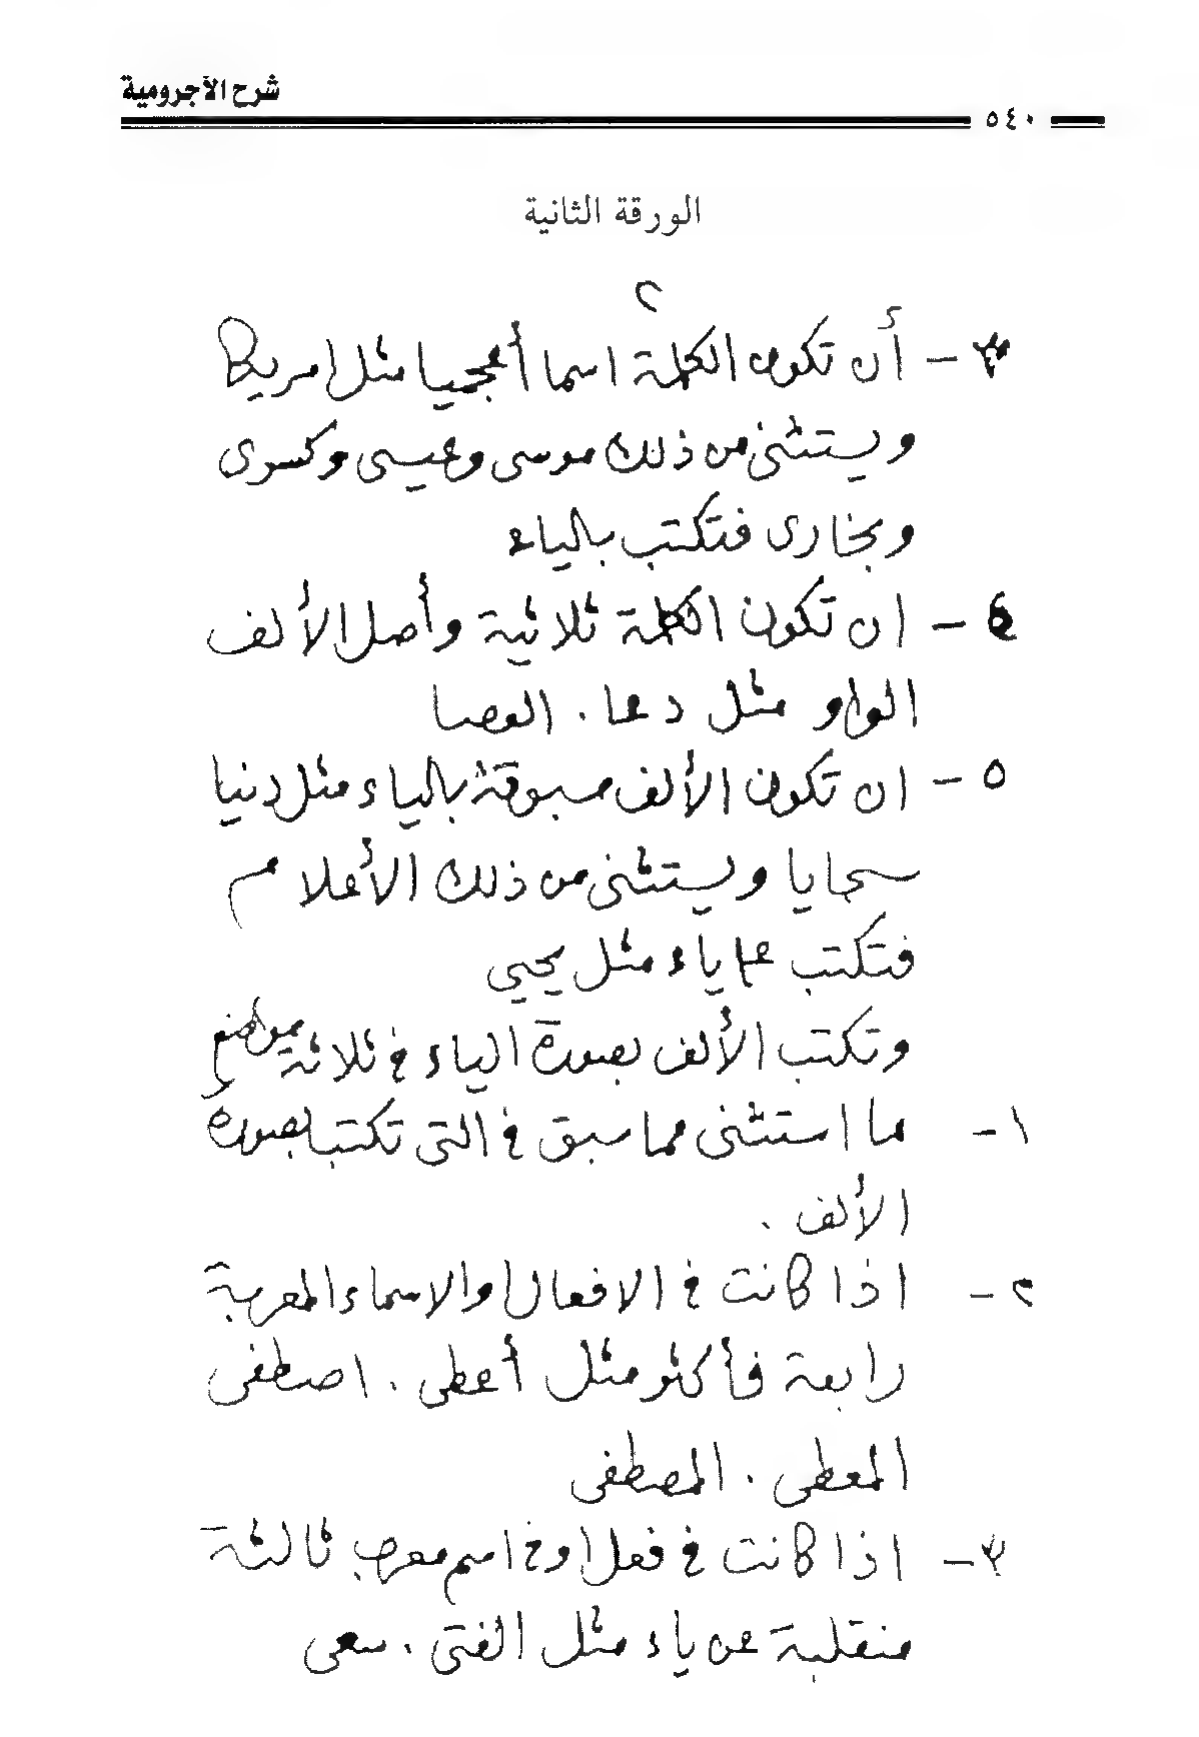 شرح الآجرومية
٥٤٠
الورقة الثانية
٢
٣ - أن تكون الكلمة اسما أعجميا مثل امريكا
ويستثنى من ذلك موسى وعيسى وكسرى
وبخارى فتكتب بالياء
٤ - ان تكون الكلمة ثلاثية وأصل الألف
الواو مثل دعا . العصا
٥ - ان تكون الألف مسبوقة بالياء مثل دنيا
سجايا ويستثنى من ذلك الأعلام
فتكتب ياء مثل يحيى
وتكتب الألف بصورة الياء في ثلاثة مواضع
١ - ما استثنى مما سبق في التى تكتب بصورة
الألف .
٢ - اذا كانت في الافعال والاسماء المعربة
رابعة فأكثر مثل أعطى . اصطفى
المعطى . المصطفى
٣ - اذا كانت في فعل او في اسم معرب ثالثة
منقلبة عن ياء مثل الفتى . سعى